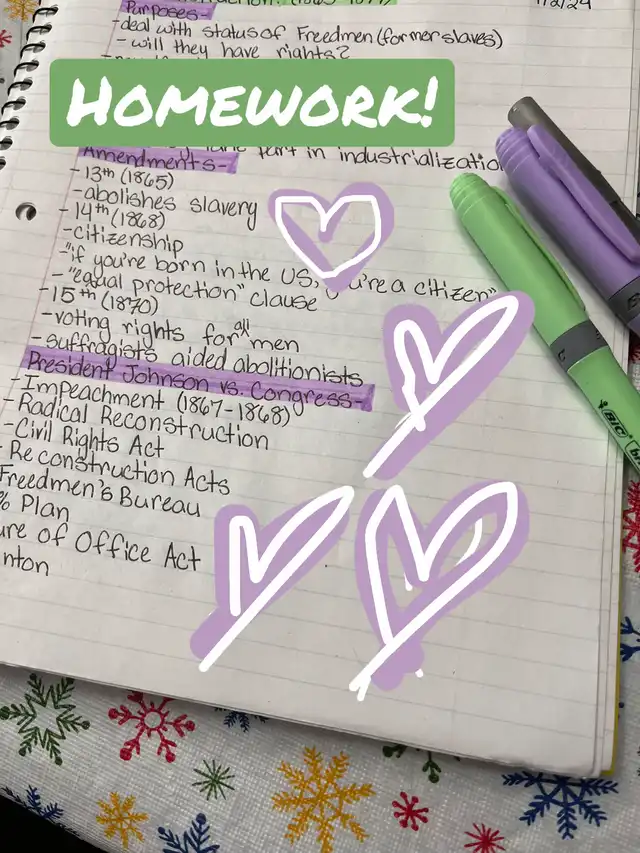 Purposes-
1/2/24
-deal with status of Freedmen (former slaves)
-will they have rights?
HOMEWORK!
part in industrialization
Amendments-
-13th (1865)
-abolishes slavery
-14th (1868)
-citizenship
-"if you're born in the US, you're a citizen"
-"equal protection" clause
-15th (1870)
-voting rights for all men
-suffragists aided abolitionists
President Johnson vs. Congress-
-Impeachment (1867-1868)
-Radical Reconstruction
-Civil Rights Act
-Reconstruction Acts
Freedmen's Bureau
% Plan
ure of Office Act
nton
BIC